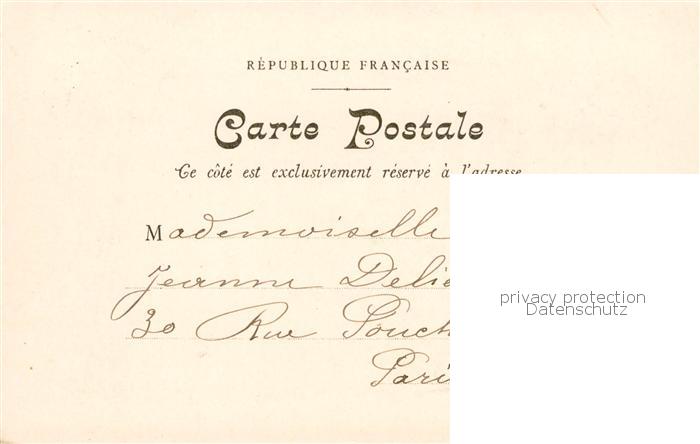 RÉPUBLIQUE FRANÇAISE
Carte Postale
Ce côté est exclusivement réservé à l'adresse
Mademoiselle
Jeanne Delid
30 Rue Pouch
Pari
privacy protection
Datenschutz